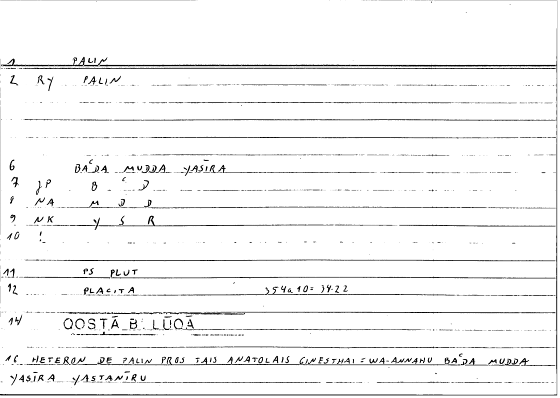 1 PALIN
2 RY PALIN
6 BAʿDA MUDDA YASĪRA
7 JP B ʿ D
8 NA M D D
9 NK Y S R
10 !
11 PS PLUT
12 PLACITA 354a10=34.22
14 QOSṬĀ B. LŪQĀ
16 HETERON DE PALIN PROS TAIS ANATOLAIS GINESTHAI = WA-ANNAHU BAʿDA MUDDA
YASĪRA YASTANĪRU